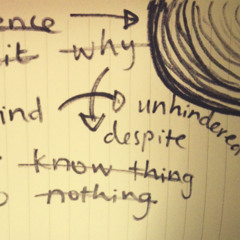 ence
it why
ind unhindered
despite
know thing
nothing